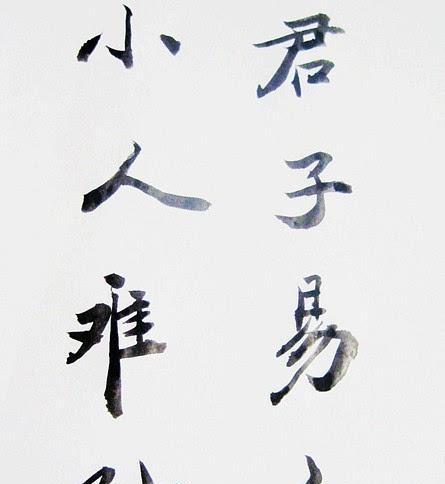 君子易
小人难